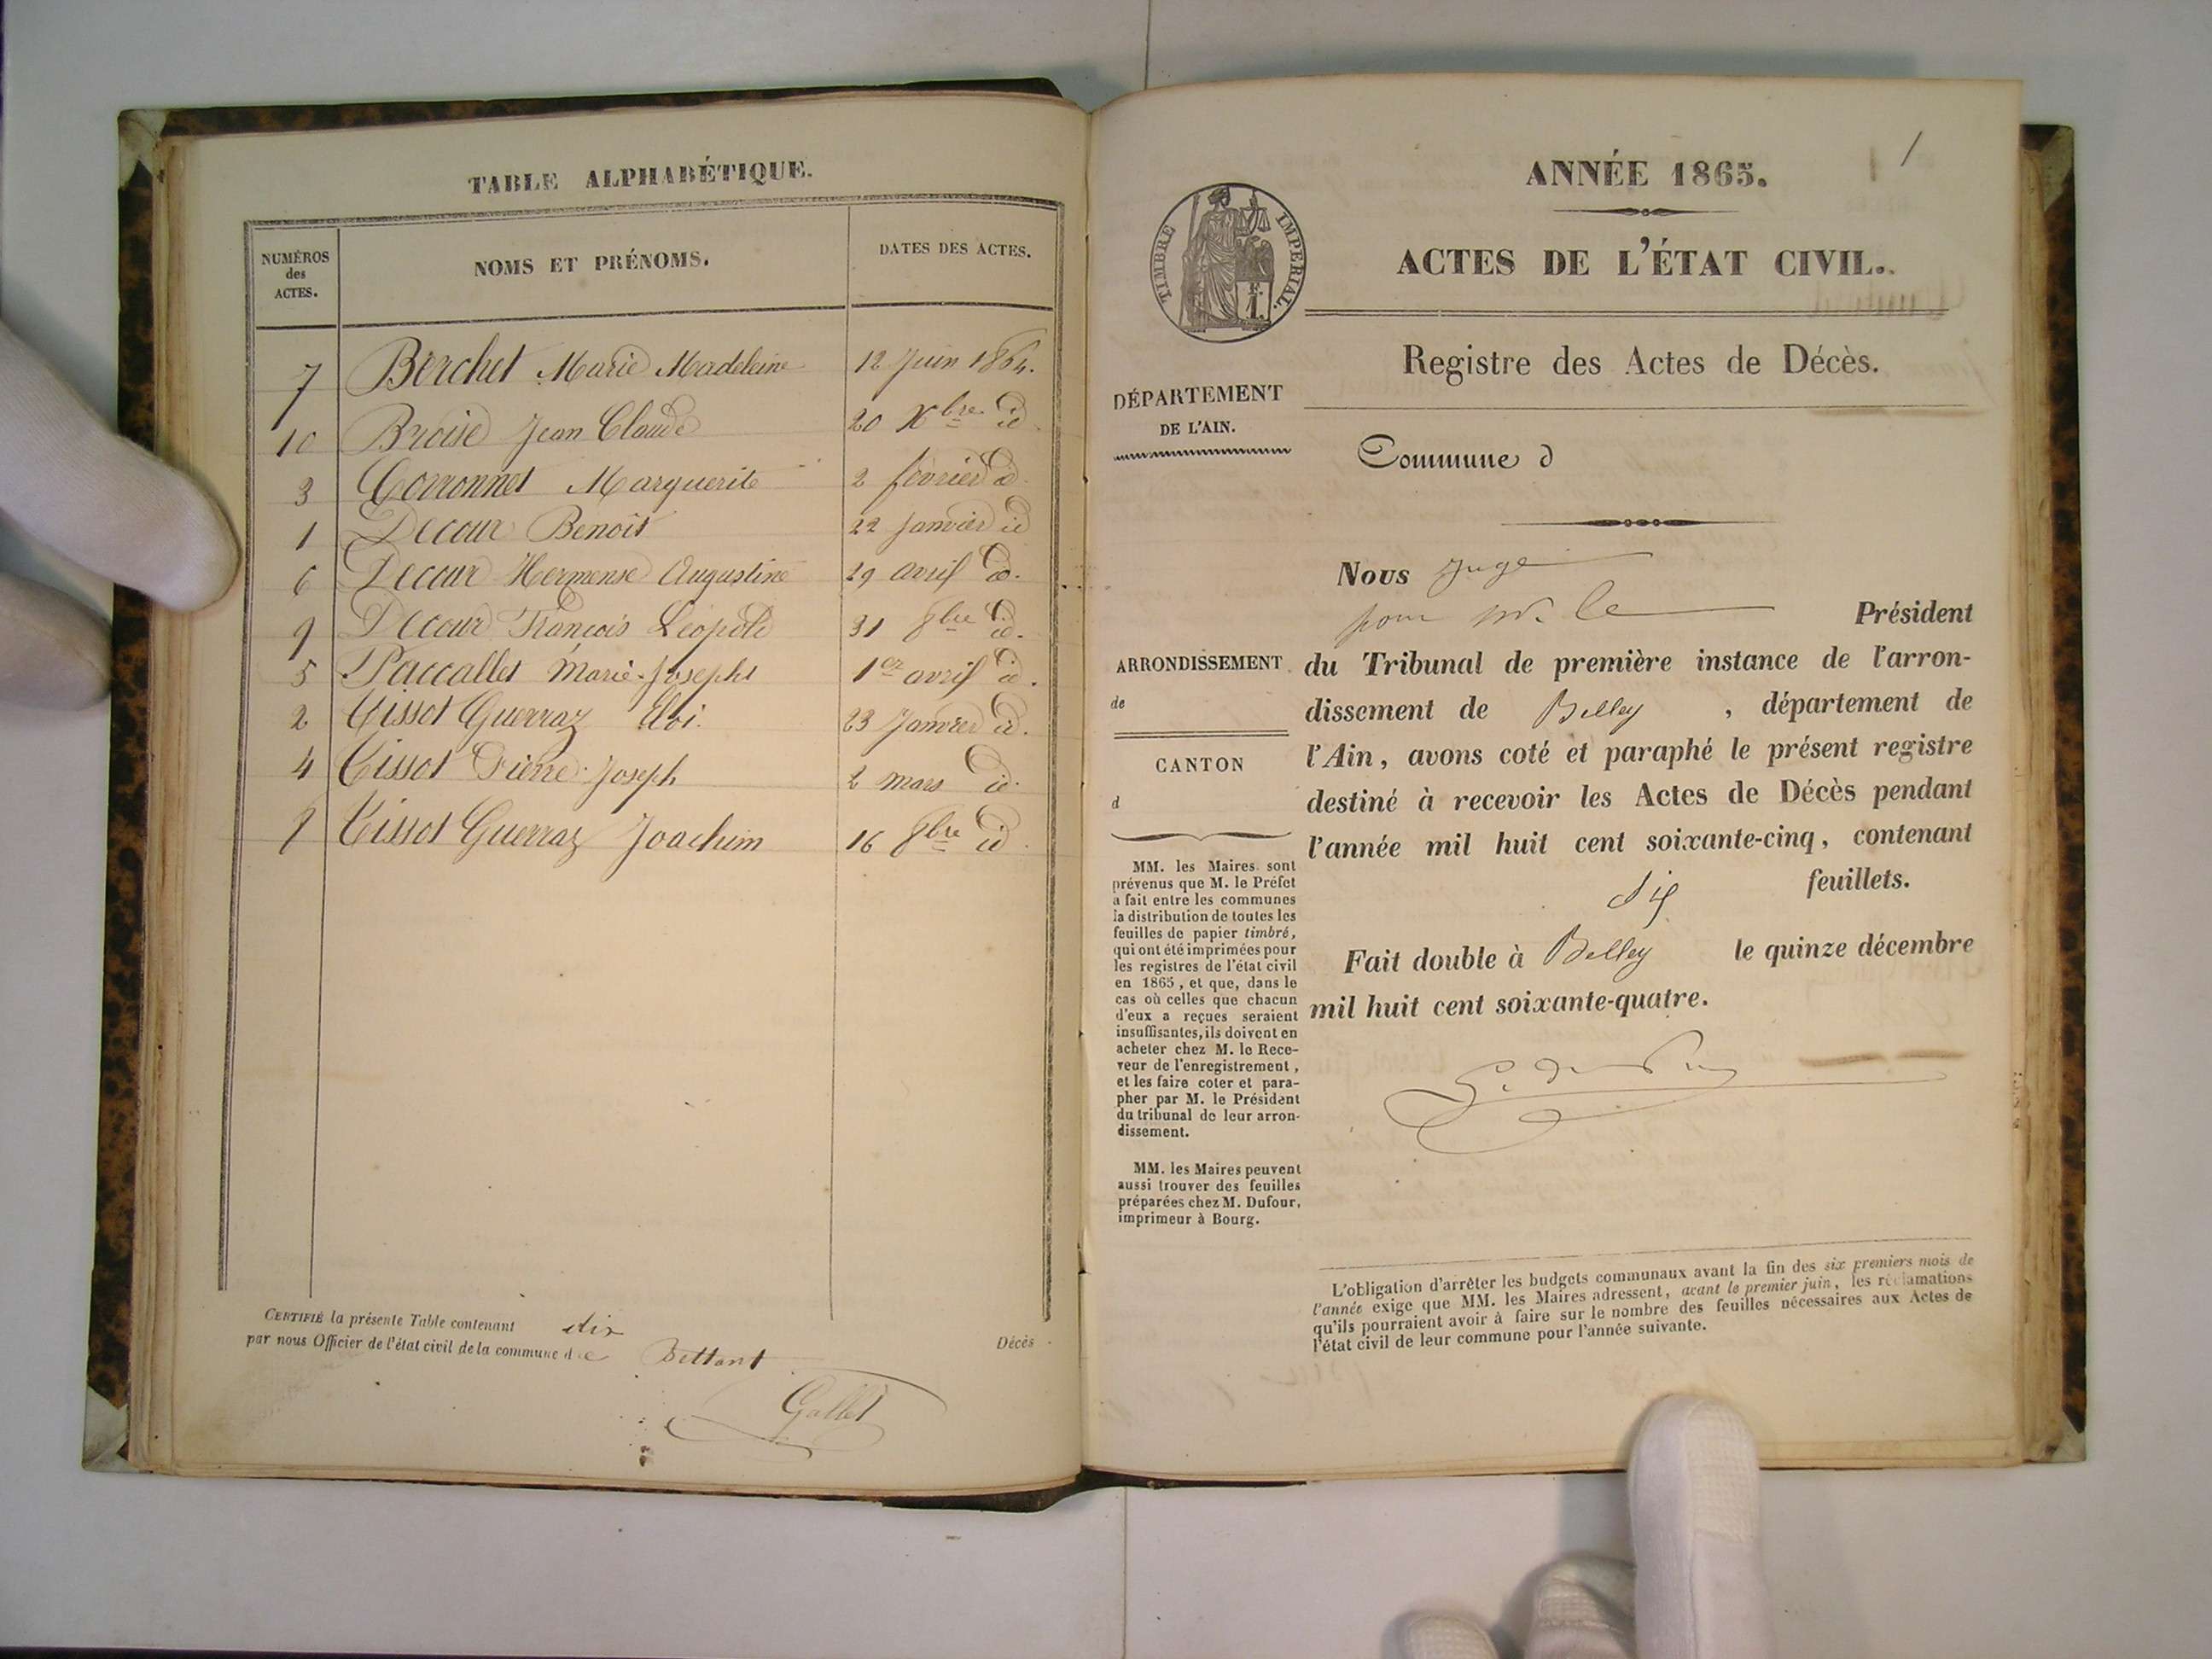 TABLE ALPHABÉTIQUE.
NUMÉROS des ACTES.
NOMS ET PRÉNOMS.
DATES DES ACTES.
7 Berchet Marie Madeleine 12 Juin 1864.
10 Broise Jean Claude 20 Xbre id
3 Corronnet Marguerite 2 février id
1 Decour Benoît 22 Janvier id
6 Decour Hermense Augustine 29 avril id.
9 Decour François Léopold 31 8bre id.
5 Paccallet Marie-Josephe 1er avril id.
2 Tissot Guerraz Eloi. 23 Janvier id.
4 Tissot Pierre Joseph 2 mars id.
Tissot Guerraz Joachim 16 8bre id.
CERTIFIÉ la présente Table contenant dix Décès
par nous Officier de l'état civil de la commune de Bettant
Gallet
1
ANNÉE 1865.
ACTES DE L'ÉTAT CIVIL.
TIMBRE IMPÉRIAL.
Registre des Actes de Décès.
DÉPARTEMENT
DE L'AIN.
Commune d
Nous Juge
pour Mr. le Président
du Tribunal de première instance de l'arron-
dissement de Belley, département de
l'Ain, avons coté et paraphé le présent registre
destiné à recevoir les Actes de Décès pendant
l'année mil huit cent soixante-cinq, contenant
feuillets.
Fait double à Belley le quinze décembre
mil huit cent soixante-quatre.
ARRONDISSEMENT
de
CANTON
d
MM. les Maires sont
prévenus que M. le Préfet
a fait entre les communes
la distribution de toutes les
feuilles de papier timbré,
qui ont été imprimées pour
les registres de l'état civil
en 1865, et que, dans le
cas où celles que chacun
d'eux a reçues seraient
insuffisantes, ils doivent en
acheter chez M. le Rece-
veur de l'enregistrement,
et les faire coter et para-
pher par M. le Président
du tribunal de leur arron-
dissement.
MM. les Maires peuvent
aussi trouver des feuilles
préparées chez M. Dufour,
imprimeur à Bourg.
L'obligation d'arrêter les budgets communaux avant la fin des six premiers mois de
l'année exige que MM. les Maires adressent, avant le premier juin, les réclamations
qu'ils pourraient avoir à faire sur le nombre des feuilles nécessaires aux Actes de
l'état civil de leur commune pour l'année suivante.